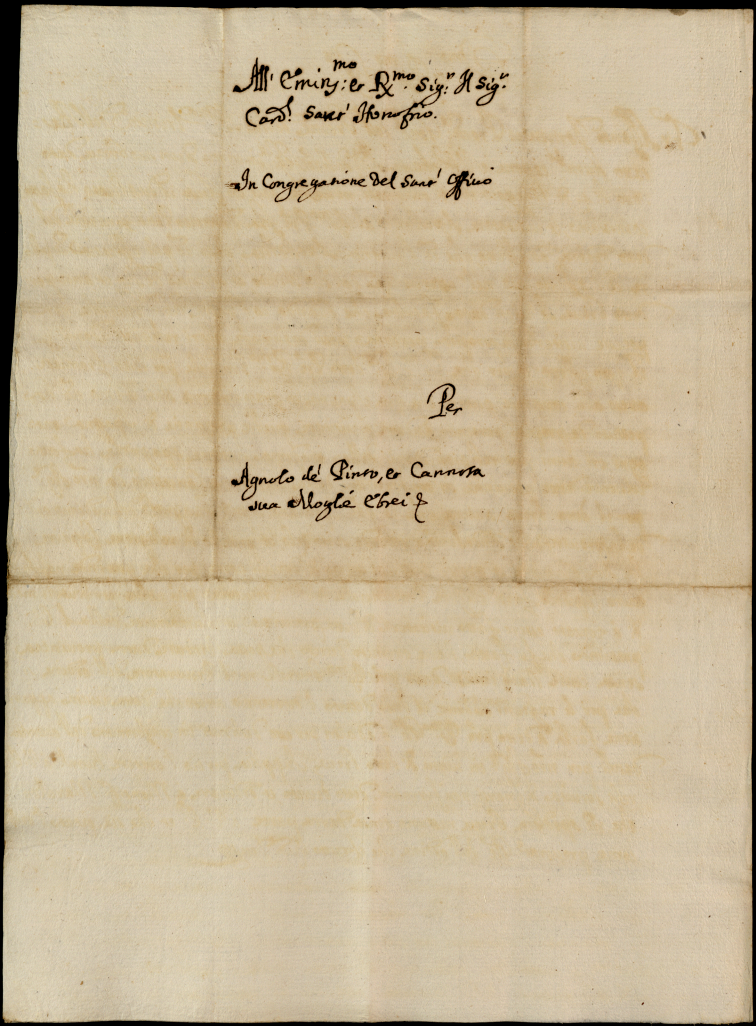 All' Emin.mo et R.mo Sig.r Il Sig.r
Card.l Sant' Honofrio.
In Congregatione del Sant' Officio
Per
Agnolo de' Pinto, et Cannosa
sua Moglie Ebrei